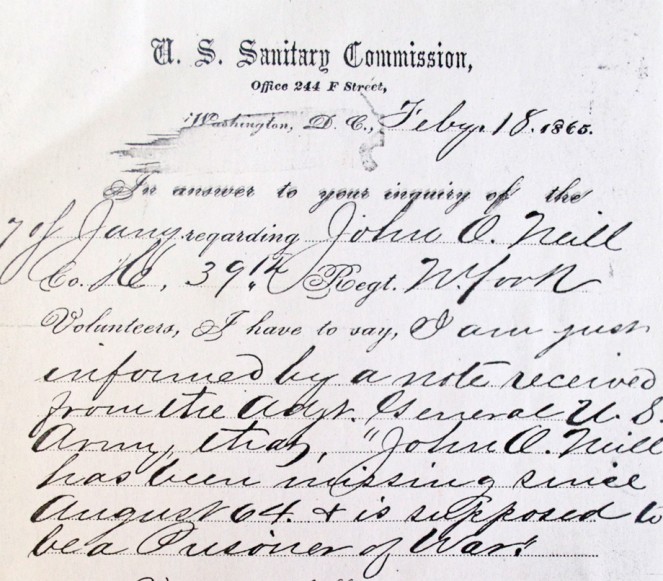 U. S. Sanitary Commission,
Office 244 F Street,
Washington, D. C., Feby. 18. 1865.
In answer to your inquiry of the
7 of Jany regarding John O. Neill
Co. 39th Regt. N. York
Volunteers, I have to say, I am just
informed by a note received
from the Adjt. General U. S.
Army, that, "John O. Neill
has been missing since
August 64. & is supposed to
be a Prisoner of War."